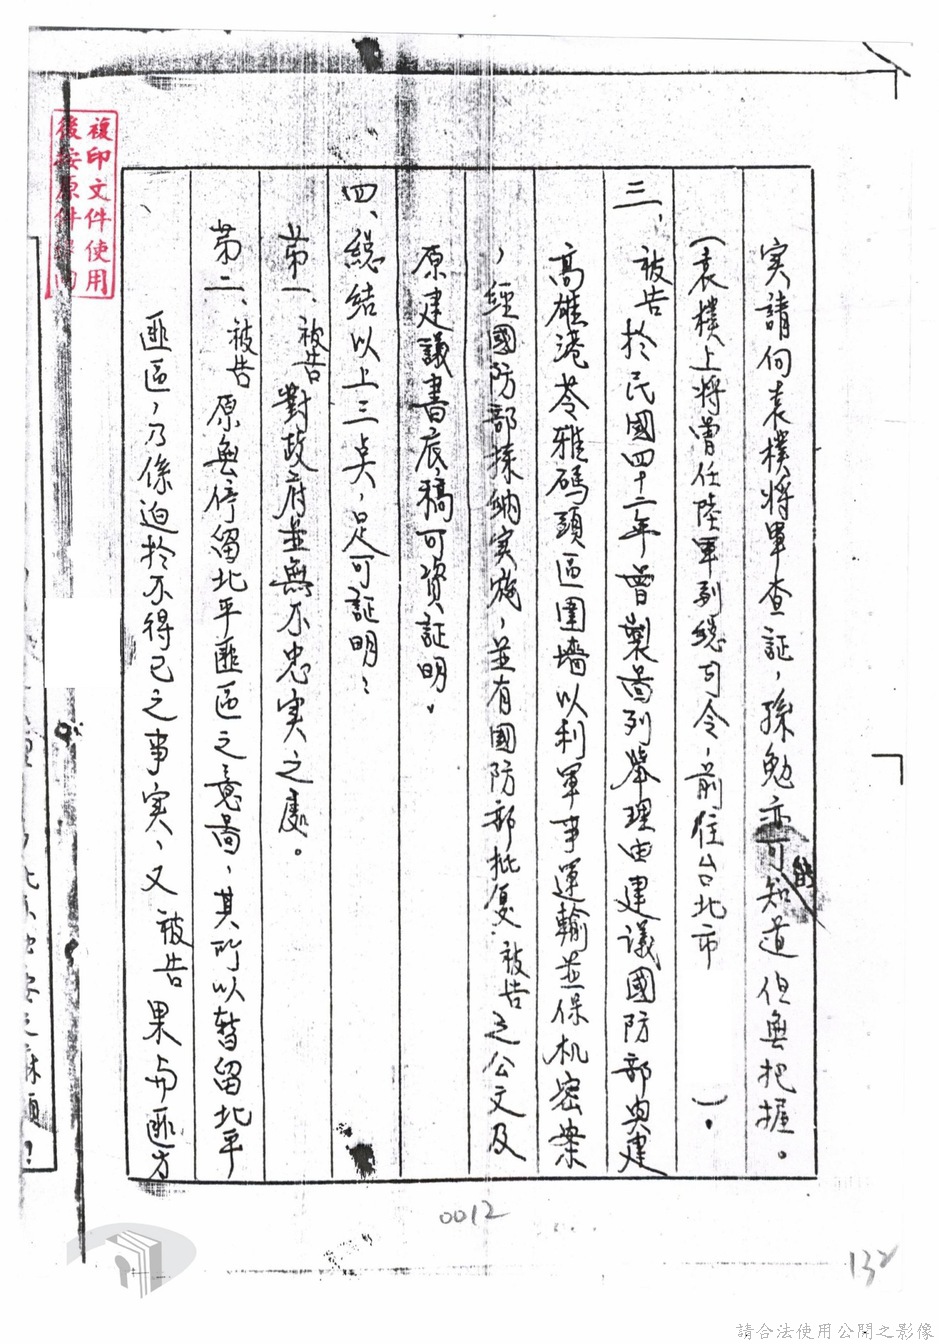 実請向袁樸將軍查証，孫勉亦可能知道但無把握。
（袁樸上將曾任陸軍副總司令，前住台北市　　）。
三、被告於民國四十二年曾製啚列舉理由建議國防部興建
高雄港苓雅碼頭區圍墻以利軍事運輸並保机密案
，經國防部採納実施，並有國防部批復被告之公文及
原建議書底稿可資証明。
四、總結以上三点，足可証明：
第一、被告對政府並無不忠実之處。
第二、被告原無停留北平匪區之意啚，其所以暫留北平
匪區，乃係迫於不得已之事実，又被告果与匪方
複印文件使用
後按原件
0012
132
請合法使用公開之影像